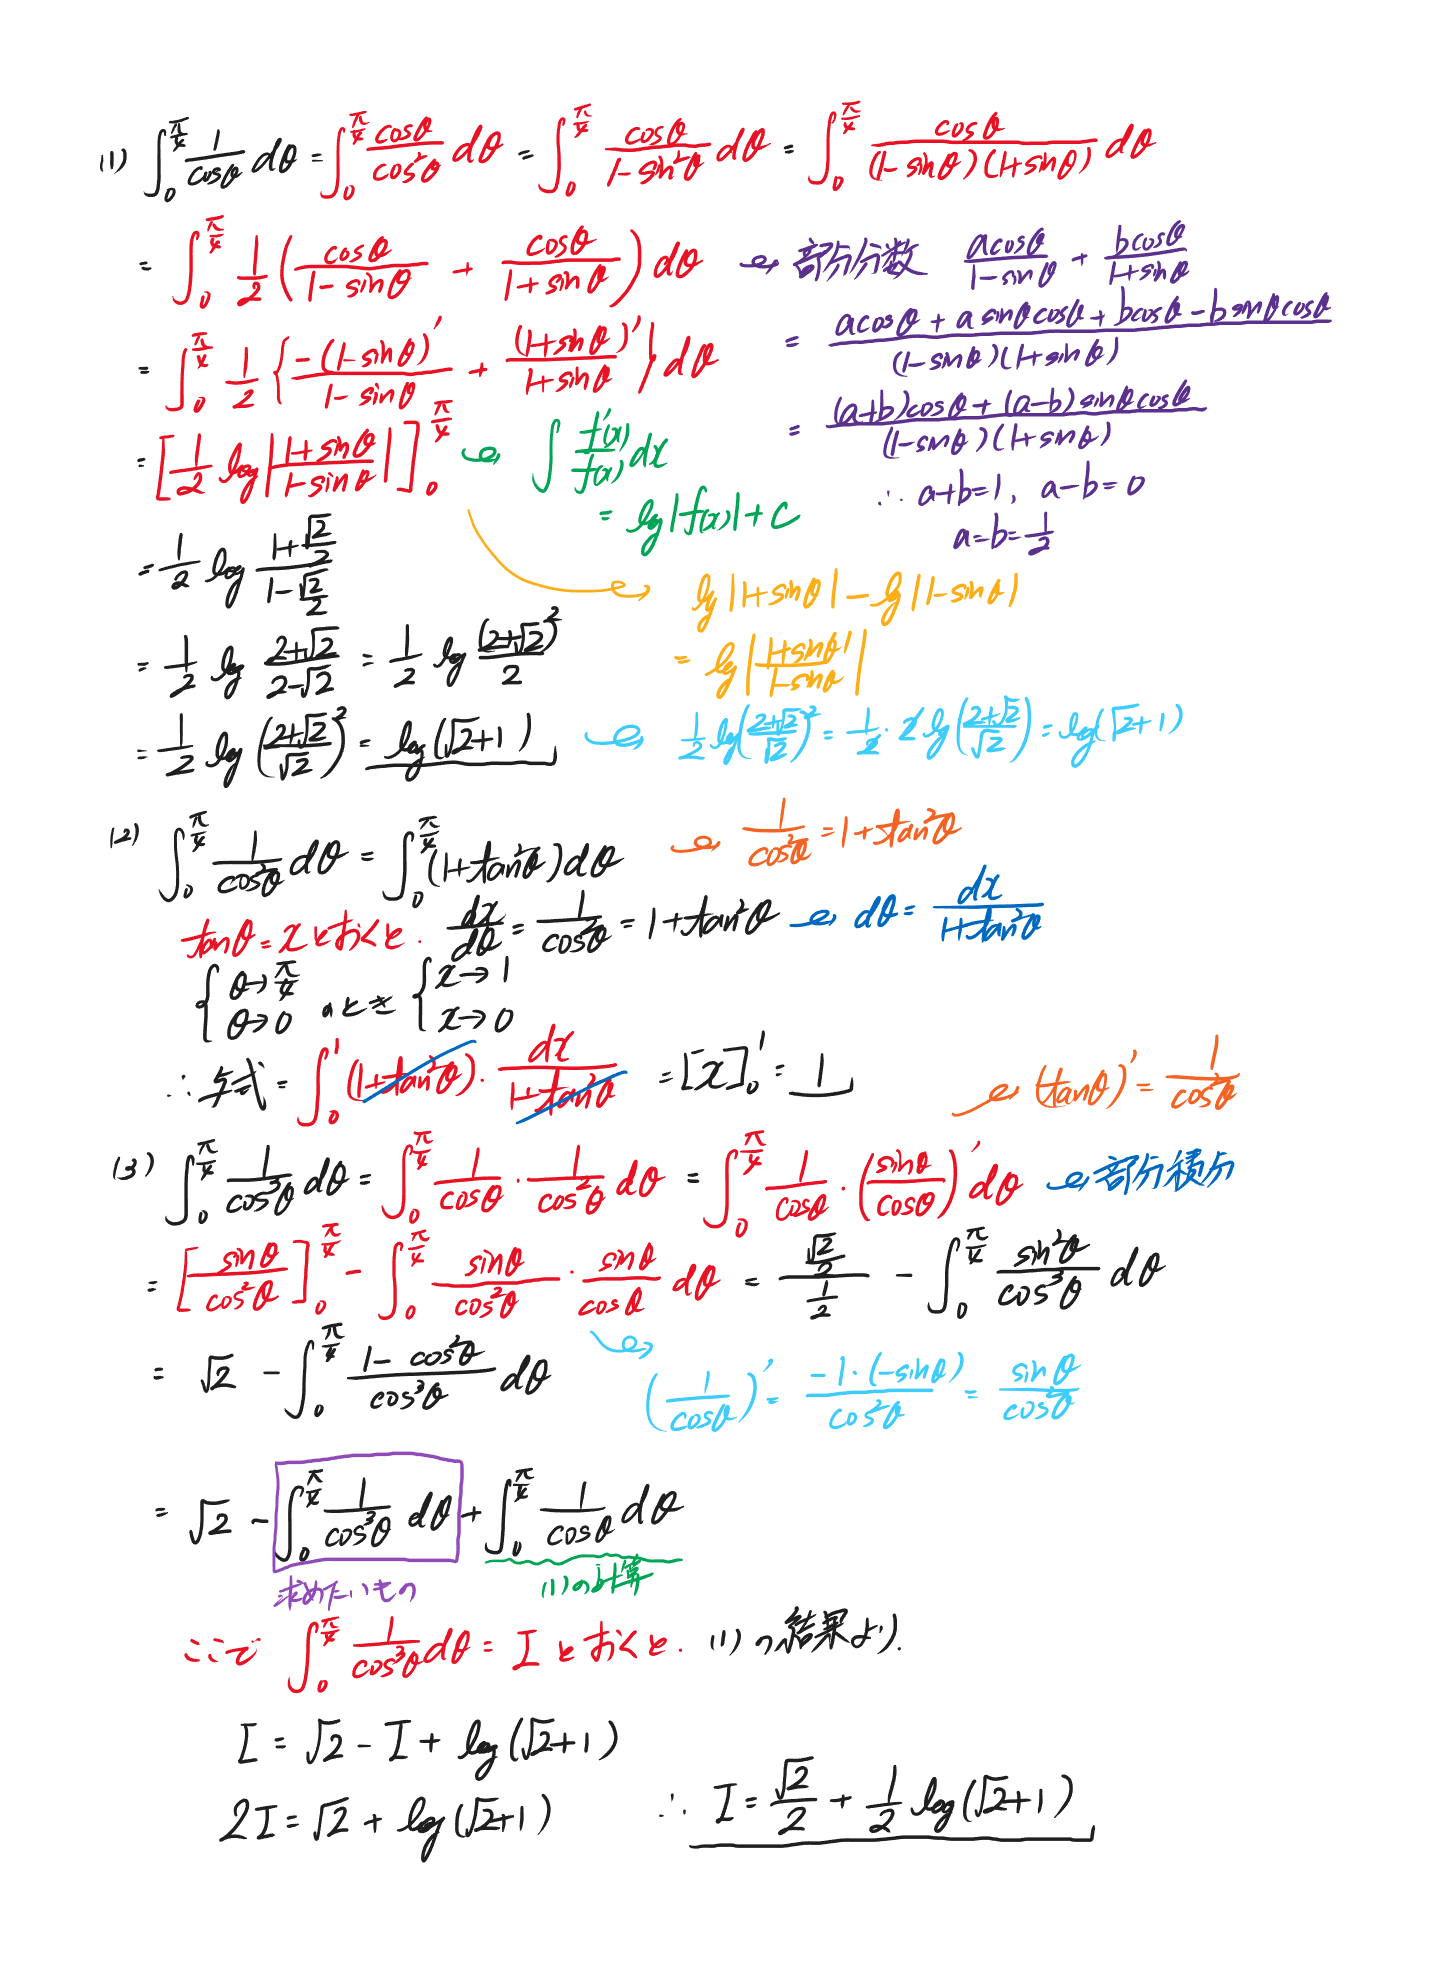 (1) ∫₀^{π/4} 1/cosθ dθ = ∫₀^{π/4} cosθ/cos²θ dθ = ∫₀^{π/4} cosθ/(1-sin²θ) dθ = ∫₀^{π/4} cosθ/((1-sinθ)(1+sinθ)) dθ
= ∫₀^{π/4} 1/2 (cosθ/(1-sinθ) + cosθ/(1+sinθ)) dθ 部分分数 acosθ/(1-sinθ) + bcosθ/(1+sinθ)
= (acosθ + a sinθcosθ + bcosθ - b sinθcosθ)/((1-sinθ)(1+sinθ))
= ∫₀^{π/4} 1/2 {-(1-sinθ)'/(1-sinθ) + (1+sinθ)'/(1+sinθ)} dθ
= ((a+b)cosθ + (a-b)sinθcosθ)/((1-sinθ)(1+sinθ))
= [1/2 log|(1+sinθ)/(1-sinθ)|]₀^{π/4} ∫ f'(x)/f(x) dx
∴ a+b=1, a-b=0
= log|f(x)| + C
a=b=1/2
= 1/2 log (1+√2/2)/(1-√2/2)
log|1+sinθ| - log|1-sinθ|
= 1/2 log (2+√2)/(2-√2) = 1/2 log (2+√2)²/2
= log|(1+sinθ)/(1-sinθ)|
= 1/2 log((2+√2)/√2)² = log(√2+1) 1/2 log((2+√2)/√2)² = 1/2・2 log((2+√2)/√2) = log(√2+1)
(2) ∫₀^{π/4} 1/cos²θ dθ = ∫₀^{π/4} (1+tan²θ)dθ 1/cos²θ = 1+tan²θ
tanθ=xとおくと. dx/dθ = 1/cos²θ = 1+tan²θ dθ = dx/(1+tan²θ)
{θ→π/4 θ→0 のとき {x→1 x→0
∴ 与式 = ∫₀¹ (1+tan²θ)・dx/(1+tan²θ) = [x]₀¹ = 1 (tanθ)' = 1/cos²θ
(3) ∫₀^{π/4} 1/cos³θ dθ = ∫₀^{π/4} 1/cosθ・1/cos²θ dθ = ∫₀^{π/4} 1/cosθ・(sinθ/cosθ)' dθ 部分積分
= [sinθ/cos²θ]₀^{π/4} - ∫₀^{π/4} sinθ/cos²θ・sinθ/cosθ dθ = (√2/2)/(1/2) - ∫₀^{π/4} sin²θ/cos³θ dθ
= √2 - ∫₀^{π/4} (1-cos²θ)/cos³θ dθ
(1/cosθ)' = -1・(-sinθ)/cos²θ = sinθ/cos²θ
= √2 - ∫₀^{π/4} 1/cos³θ dθ + ∫₀^{π/4} 1/cosθ dθ
求めたいもの (1)の計算
ここで ∫₀^{π/4} 1/cos³θ dθ = I とおくと. (1)の結果より.
I = √2 - I + log(√2+1)
2I = √2 + log(√2+1) ∴ I = √2/2 + 1/2 log(√2+1)